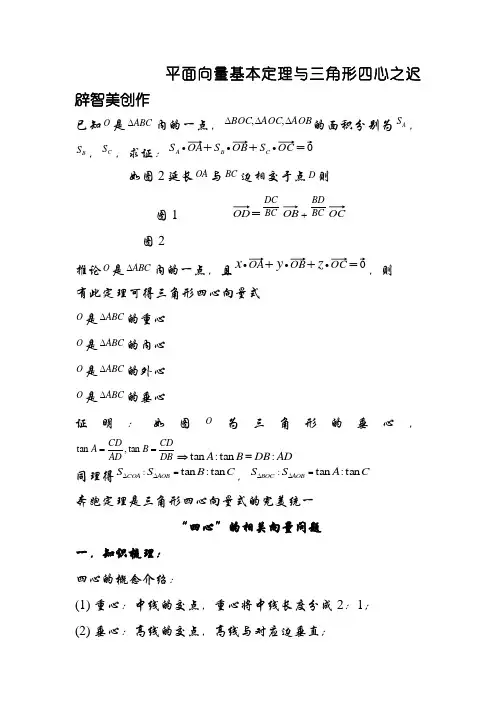 平面向量基本定理与三角形四心之迟
辟智美创作
已知O是ΔABC内的一点，ΔBOC,ΔAOC,ΔAOB的面积分别为S_A，
S_B，S_C，求证：S_A•OA+S_B•OB+S_C•OC=0
如图2延长OA与BC边相交于点D则
图1 OD=DC/BC OB+BD/BC OC
图2
推论O是ΔABC内的一点，且x•OA+y•OB+z•OC=0，则
有此定理可得三角形四心向量式
O是ΔABC的重心
O是ΔABC的内心
O是ΔABC的外心
O是ΔABC的垂心
证明：如图O为三角形的垂心，
tan A=CD/AD,tan B=CD/DB⇒tan A:tan B=DB:AD
同理得S_ΔCOA:S_ΔAOB=tan B:tan C，S_ΔBOC:S_ΔAOB=tan A:tan C
奔驰定理是三角形四心向量式的完美统一
“四心”的相关向量问题
一．知识梳理：
四心的概念介绍：
(1) 重心：中线的交点，重心将中线长度分成2：1；
(2) 垂心：高线的交点，高线与对应边垂直；